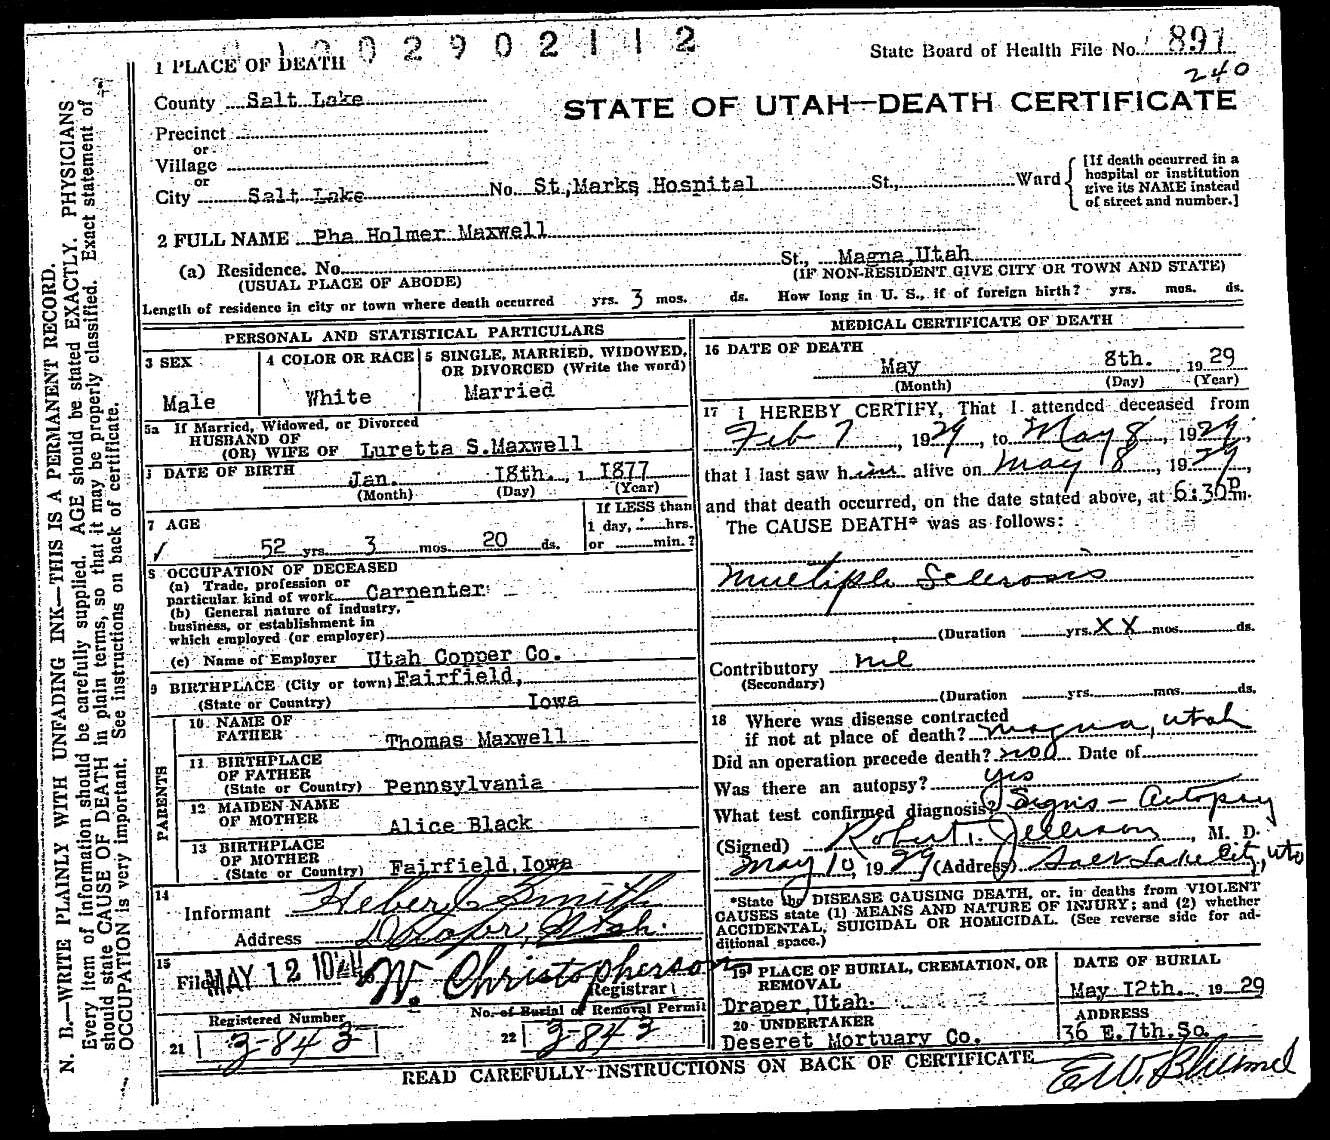 02902112
State Board of Health File No. 891
240
1 PLACE OF DEATH
County Salt Lake
STATE OF UTAH—DEATH CERTIFICATE
Precinct
or
Village
or
City Salt Lake No. St,Marks Hospital St., Ward
[If death occurred in a
hospital or institution
give its NAME instead
of street and number.]
2 FULL NAME Pha Holmer Maxwell
(a) Residence. No. St., Magna,Utah
(USUAL PLACE OF ABODE) (IF NON-RESIDENT GIVE CITY OR TOWN AND STATE)
Length of residence in city or town where death occurred yrs. 3 mos. ds. How long in U. S., if of foreign birth? yrs. mos. ds.
PERSONAL AND STATISTICAL PARTICULARS
3 SEX
Male
4 COLOR OR RACE
White
5 SINGLE, MARRIED, WIDOWED,
OR DIVORCED (Write the word)
Married
5a If Married, Widowed, or Divorced
HUSBAND OF
(OR) WIFE OF Luretta S.Maxwell
DATE OF BIRTH Jan. 18th., 1 1877
(Month) (Day) (Year)
7 AGE
52 yrs. 3 mos. 20 ds.
If LESS than
1 day, hrs.
or min.?
8 OCCUPATION OF DECEASED
(a) Trade, profession or
particular kind of work Carpenter
(b) General nature of industry,
business, or establishment in
which employed (or employer)
(c) Name of Employer Utah Copper Co.
9 BIRTHPLACE (City or town) Fairfield,
(State or Country) Iowa
PARENTS
10 NAME OF
FATHER Thomas Maxwell
11 BIRTHPLACE
OF FATHER
(State or Country) Pennsylvania
12 MAIDEN NAME
OF MOTHER Alice Black
13 BIRTHPLACE
OF MOTHER
(State or Country) Fairfield,Iowa
14
Informant Heber C Smith
Address Draper, Utah.
15
Filed MAY 12 1929 W. Christopherson
Registrar
Registered Number
21 3-843
No. of Burial or Removal Permit
22 3-843
MEDICAL CERTIFICATE OF DEATH
16 DATE OF DEATH
May 8th. 1929
(Month) (Day) (Year)
17 I HEREBY CERTIFY, That I attended deceased from
Feb 7, 1929, to May 8, 1929,
that I last saw him alive on May 8, 1929,
and that death occurred, on the date stated above, at 6:30 P. m.
The CAUSE DEATH* was as follows:
Multiple Sclerosis
(Duration yrs. XX mos. ds.
Contributory nil
(Secondary)
(Duration yrs. mos. ds.
18 Where was disease contracted
if not at place of death? Magna, Utah
Did an operation precede death? no Date of
Was there an autopsy? yes
What test confirmed diagnosis? Signs — Autopsy
(Signed) Robert T. Jellison, M. D.
May 10, 1929 (Address) Salt Lake City, Uta
*State the DISEASE CAUSING DEATH, or, in deaths from VIOLENT
CAUSES state (1) MEANS AND NATURE OF INJURY; and (2) whether
ACCIDENTAL, SUICIDAL OR HOMICIDAL. (See reverse side for ad-
ditional space.)
19 PLACE OF BURIAL, CREMATION, OR
REMOVAL
Draper,Utah.
DATE OF BURIAL
May 12th. 1929
20 UNDERTAKER
Deseret Mortuary Co.
ADDRESS
36 E.7th.So.
READ CAREFULLY INSTRUCTIONS ON BACK OF CERTIFICATE
N. B.—WRITE PLAINLY WITH UNFADING INK—THIS IS A PERMANENT RECORD.
Every item of information should be carefully supplied. AGE should be stated EXACTLY. PHYSICIANS
should state CAUSE OF DEATH in plain terms, so that it may be properly classified. Exact statement of
OCCUPATION is very important. See instructions on back of certificate.